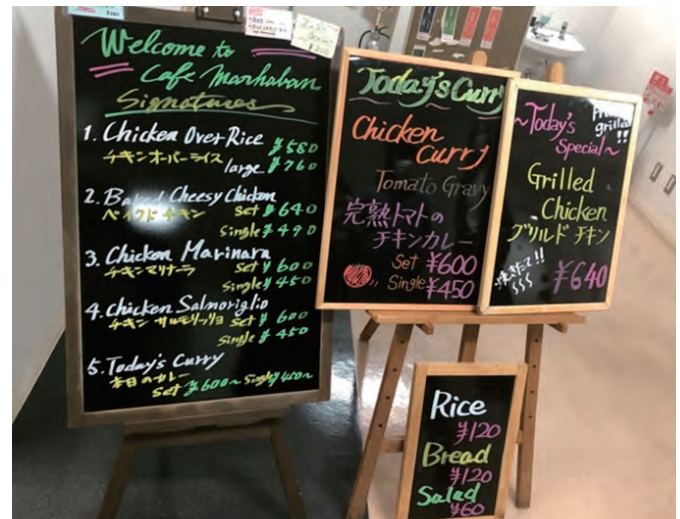 Welcome to
Cafe Marhaban
Signatures
1. Chicken Over Rice ¥580
チキンオーバーライス
large ¥760
2. Baked Cheesy Chicken
ベイクドチキン set ¥640
single ¥490
3. Chicken Marinara
チキンマリナーラ set ¥600
single ¥450
4. Chicken Salmoriglio
チキン サルモリッリョ set ¥600
single ¥450
5. Today's Curry
本日のカレー
set ¥600~ single ¥450~
Today's Curry
Chicken
Curry
Tomato Gravy
完熟トマトの
チキンカレー
Set ¥600
Single ¥450
grilled!!
~Today's
Special~
Grilled
Chicken
グリルド チキン
焼きたて!!
¥640
Rice
¥120
Bread
¥120
Salad
¥60